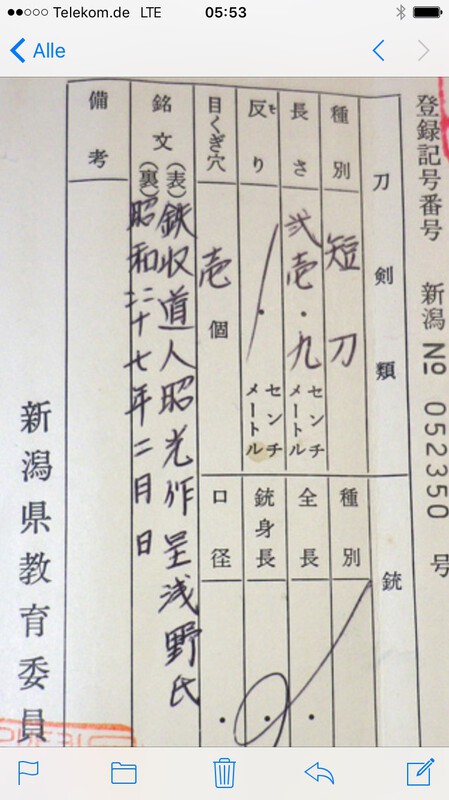 Telekom.de LTE 05:53
Alle
登録記号番号 新潟 № 052350 号
刀剣類
銃
種別 短刀
種別
長さ 弐壱・九 センチメートル
全長
反り ・ センチメートル
銃身長
目くぎ穴 壱個
口径
銘文 (表) 鉄収道人昭光作 呈浅野氏
(裏) 昭和三十七年二月 日
備考
新潟県教育委員